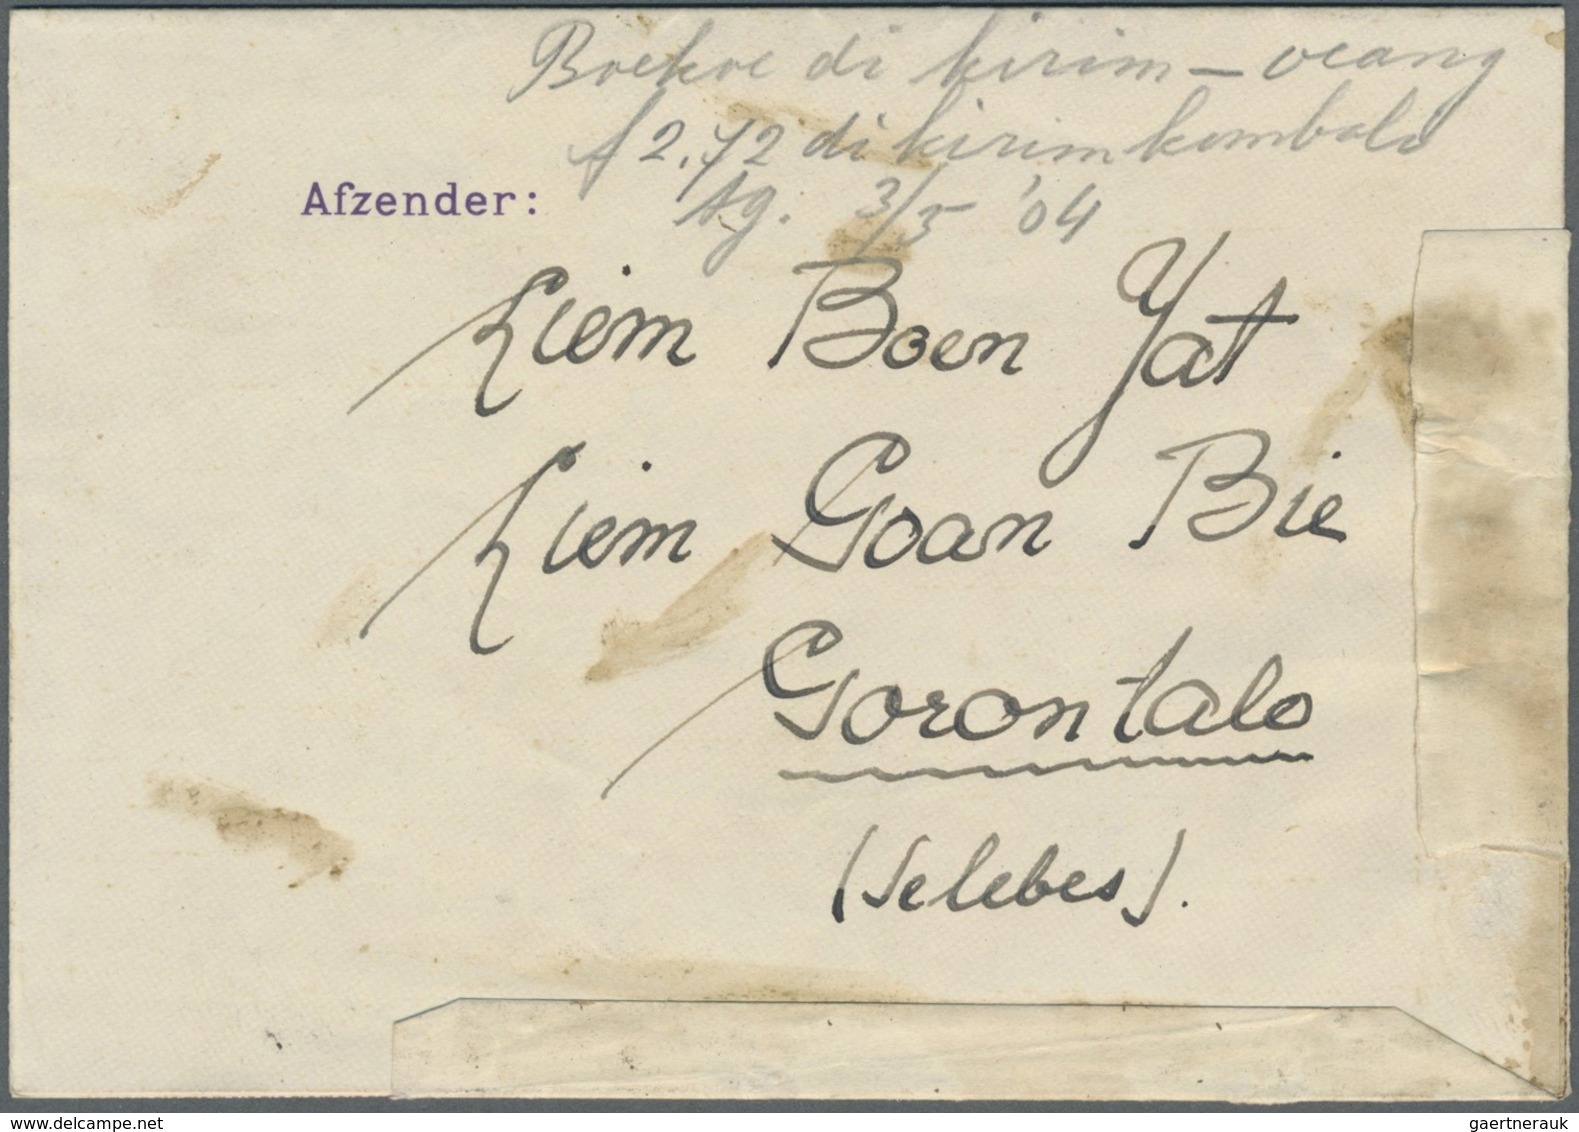 Boekoe di kirim – oeang
f 2.72 di kirim kembali
tg. 3/5 '04
Afzender:
Liem Boen Yat
Liem Goan Bie
Gorontalo
(Selebes).
gaertnerauk